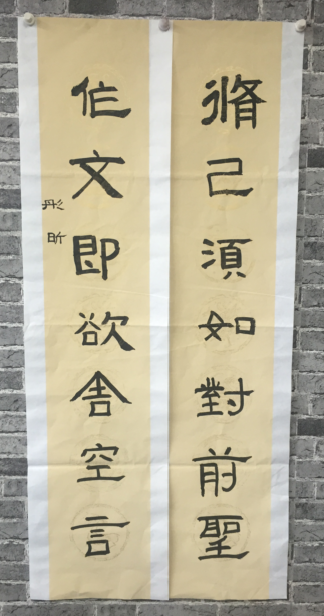 脩己須如對前聖
作文即欲舍空言
彤昕